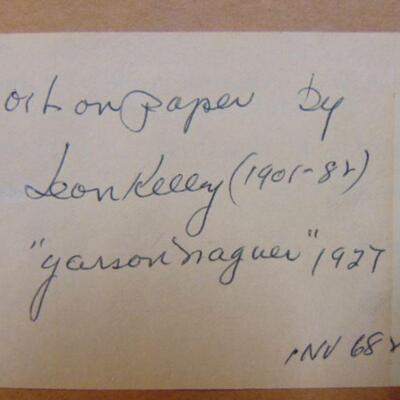 oil on paper by
Leon Kelly (1901-82)
"garson Wagner" 1927
INV 682